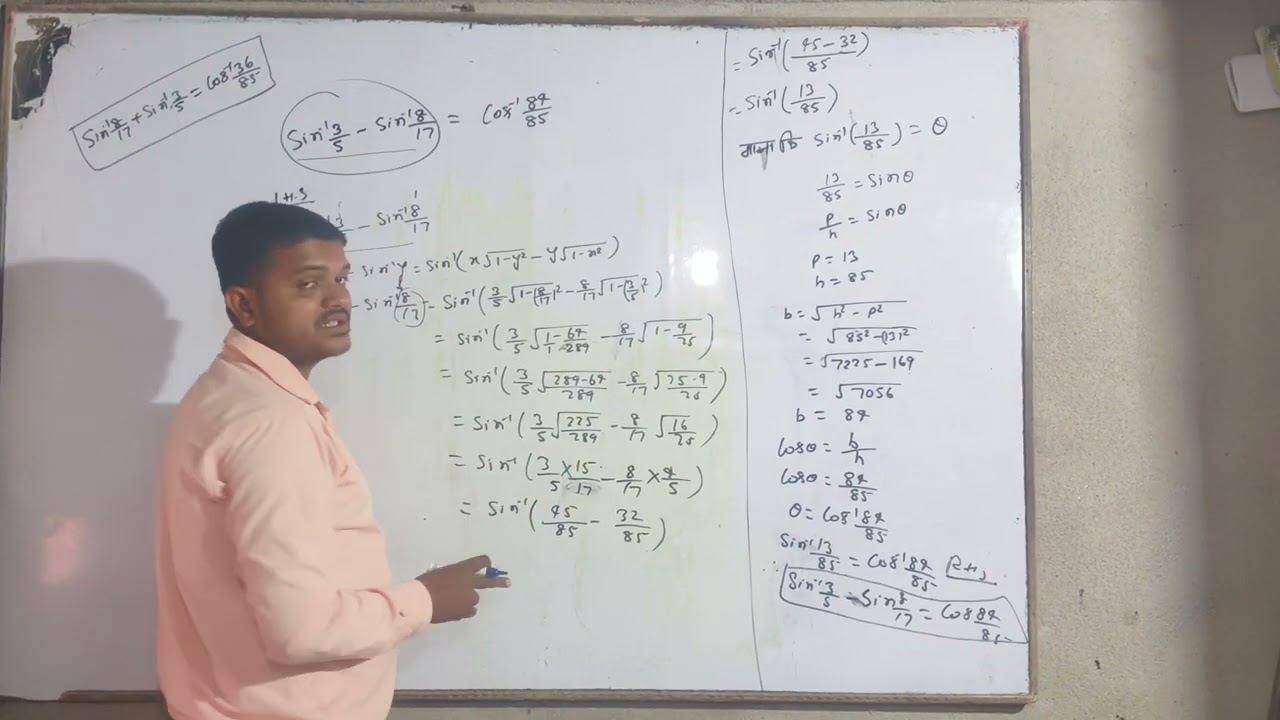 Sin⁻¹ 8/17 + Sin⁻¹ 3/5 = Cos⁻¹ 36/85
Sin⁻¹ 3/5 − Sin⁻¹ 8/17 = Cos⁻¹ 84/85
L.H.S
− Sin⁻¹ 8/17
Sin⁻¹ y = Sin⁻¹(x√1−y² − y√1−x²)
− Sin⁻¹ 8/17 = Sin⁻¹(3/5 √1−(8/17)² − 8/17 √1−(3/5)²)
= Sin⁻¹(3/5 √1/1 − 64/289 − 8/17 √1 − 9/25)
= Sin⁻¹(3/5 √289−64/289 − 8/17 √25−9/25)
= Sin⁻¹(3/5 √225/289 − 8/17 √16/25)
= Sin⁻¹(3/5 × 15/17 − 8/17 × 4/5)
= Sin⁻¹(45/85 − 32/85)
= Sin⁻¹(45−32/85)
= Sin⁻¹(13/85)
माना कि Sin⁻¹(13/85) = θ
13/85 = Sinθ
P/h = Sinθ
P = 13
h = 85
b = √h² − P²
= √85² − (13)²
= √7225 − 169
= √7056
b = 84
Cosθ = b/h
Cosθ = 84/85
θ = Cos⁻¹ 84/85
Sin⁻¹ 13/85 = Cos⁻¹ 84/85
∴ Sin⁻¹ 3/5 − Sin⁻¹ 8/17 = Cos 84/85